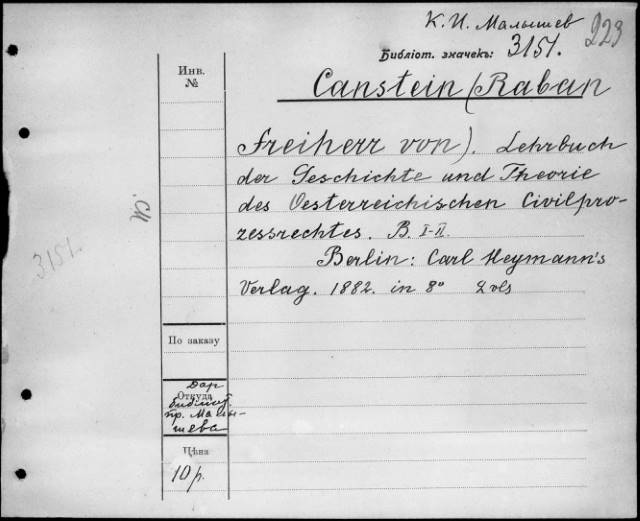 К. И. Малышев
223
Библіот. значекъ: 3151.
Инв.
№
Canstein (Raban
Freiherr von). Lehrbuch
der Geschichte und Theorie
des Oesterreichischen Civilpro-
zessrechtes. B. I-II.
Berlin: Carl Heymann's
Verlag. 1882. in 8° 2 vls
3151.
По заказу
Откуда
Дар
библиот.
пр. Малы-
шева
Цѣна
10 р.